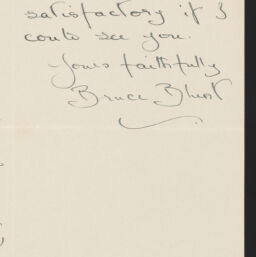 satisfactory if I
could see you.
Yours faithfully
Bruce Blunt